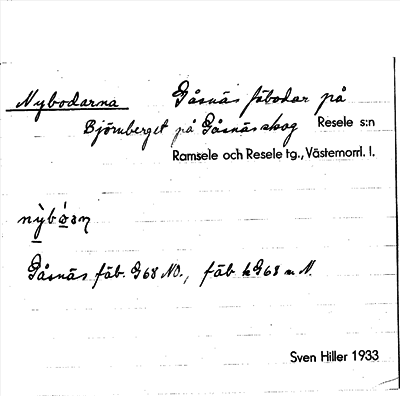 Nybodarna Gåsnäs fäbodar på
Björnberget på Gåsnäs skog Resele s:n
Ramsele och Resele tg., Västernorrl. l.
Gåsnäs fäb. G68 NO., fäb k G68 n N.
Sven Hiller 1933